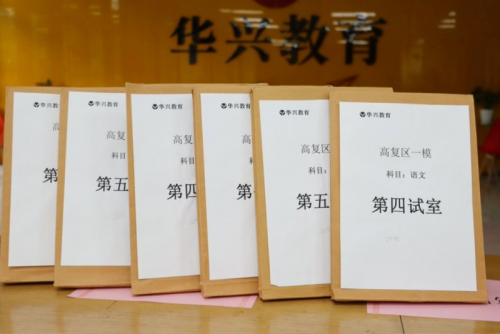 华兴教育
华兴教
高
科
第
华兴教育
高复
科目
第五
华兴教育
高复区
科目:
第四
华兴教
高复
科目
第
华兴教育
高复区
科目:
第五
华兴教育
高复区一模
科目:语文
第四试室